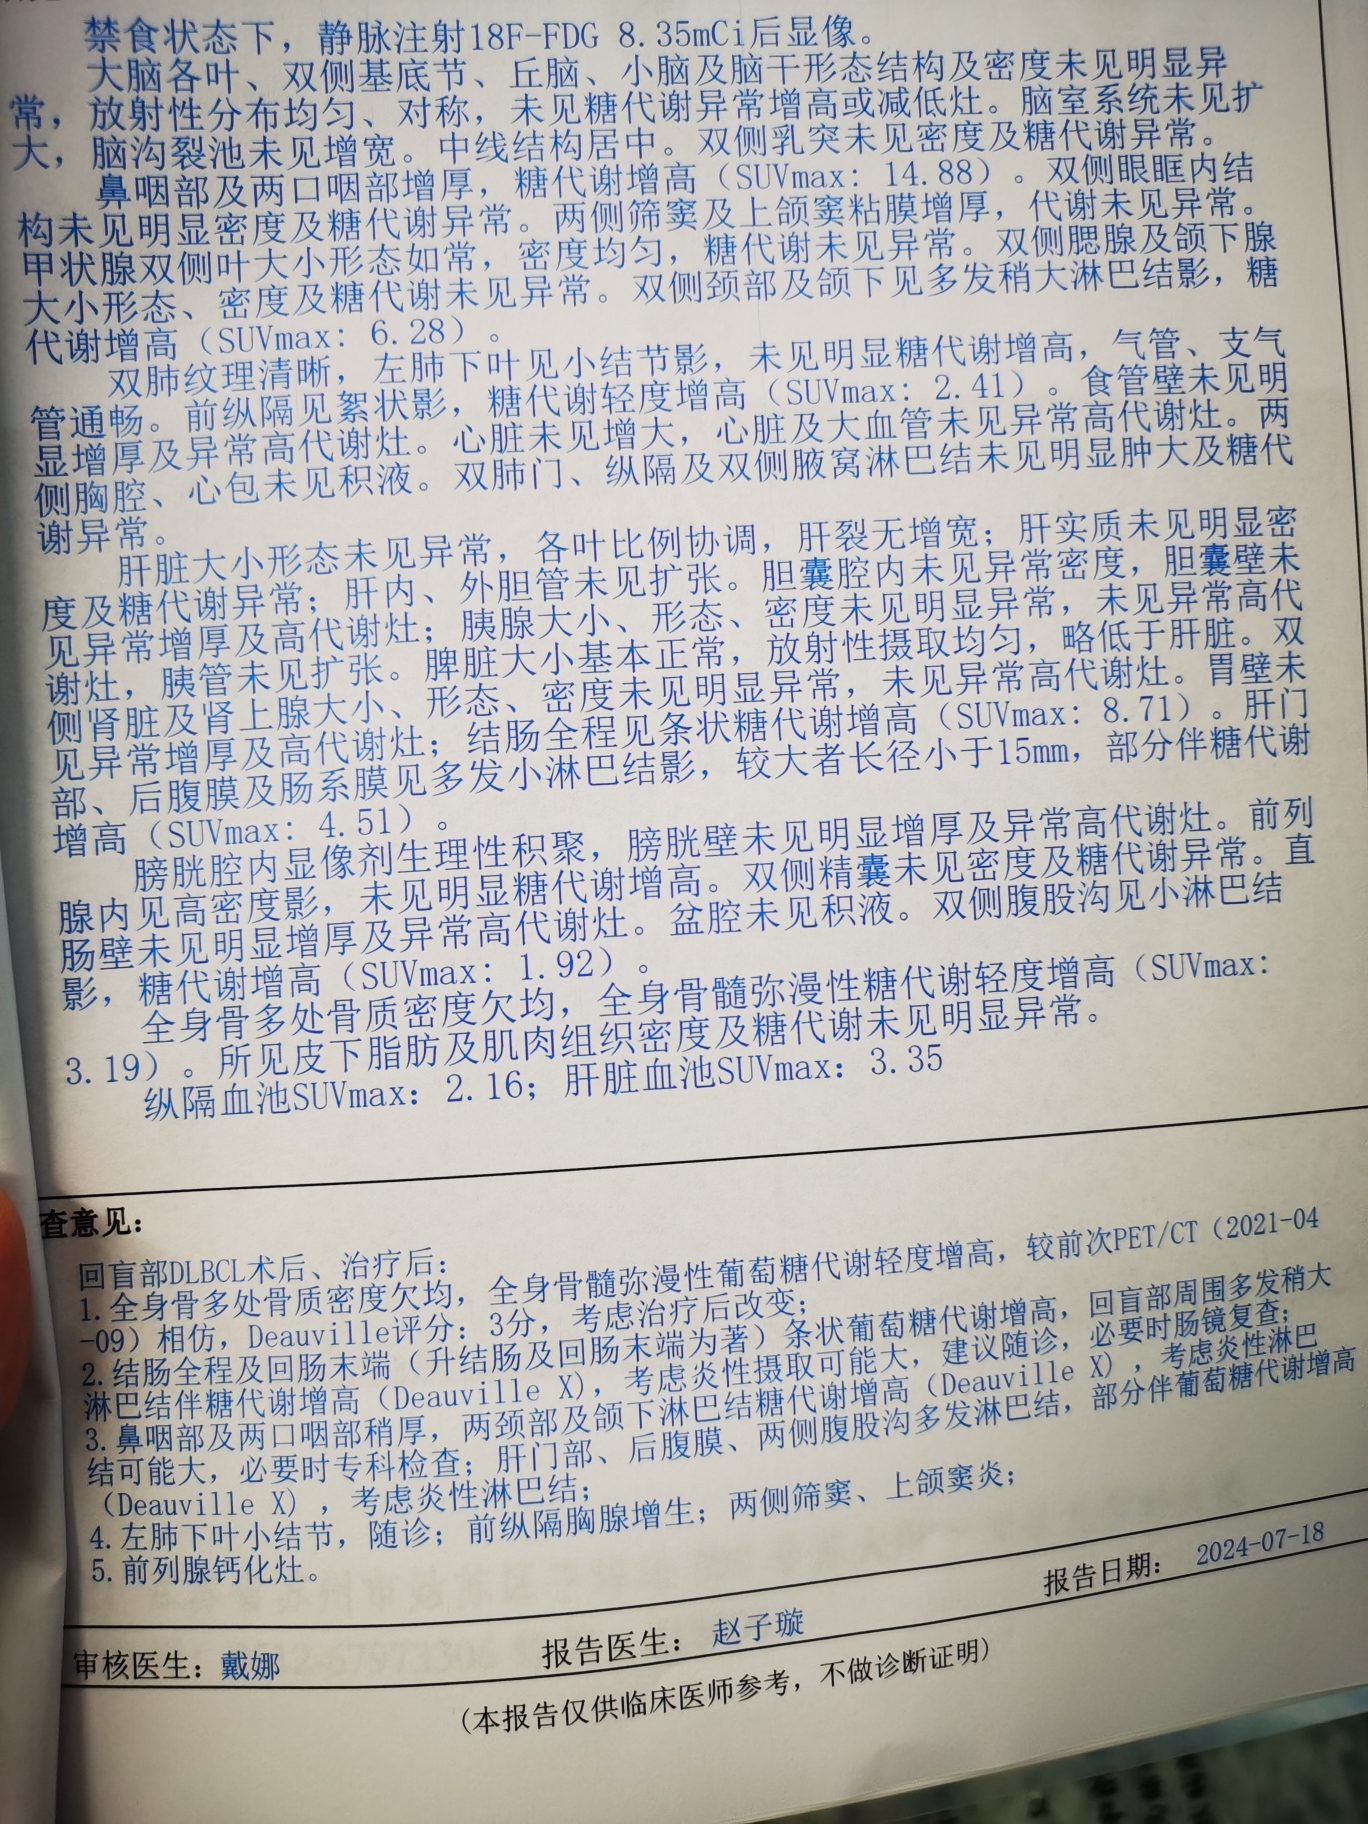 禁食状态下，静脉注射18F-FDG 8.35mCi后显像。
大脑各叶、双侧基底节、丘脑、小脑及脑干形态结构及密度未见明显异
常，放射性分布均匀、对称，未见糖代谢异常增高或减低灶。脑室系统未见扩
大，脑沟裂池未见增宽。中线结构居中。双侧乳突未见密度及糖代谢异常。
鼻咽部及两口咽部增厚，糖代谢增高（SUVmax: 14.88）。双侧眼眶内结
构未见明显密度及糖代谢异常。两侧筛窦及上颌窦粘膜增厚，代谢未见异常。
甲状腺双侧叶大小形态如常，密度均匀，糖代谢未见异常。双侧腮腺及颌下腺
大小形态、密度及糖代谢未见异常。双侧颈部及颌下见多发稍大淋巴结影，糖
代谢增高（SUVmax: 6.28）。
双肺纹理清晰，左肺下叶见小结节影，未见明显糖代谢增高，气管、支气
管通畅。前纵隔见絮状影，糖代谢轻度增高（SUVmax: 2.41）。食管壁未见明
显增厚及异常高代谢灶。心脏未见增大，心脏及大血管未见异常高代谢灶。两
侧胸腔、心包未见积液。双肺门、纵隔及双侧腋窝淋巴结未见明显肿大及糖代
谢异常。
肝脏大小形态未见异常，各叶比例协调，肝裂无增宽；肝实质未见明显密
度及糖代谢异常；肝内、外胆管未见扩张。胆囊腔内未见异常密度，胆囊壁未
见异常增厚及高代谢灶；胰腺大小、形态、密度未见明显异常，未见异常高代
谢灶，胰管未见扩张。脾脏大小基本正常，放射性摄取均匀，略低于肝脏。双
侧肾脏及肾上腺大小、形态、密度未见明显异常，未见异常高代谢灶。胃壁未
见异常增厚及高代谢灶；结肠全程见条状糖代谢增高（SUVmax: 8.71）。肝门
部、后腹膜及肠系膜见多发小淋巴结影，较大者长径小于15mm，部分伴糖代谢
增高（SUVmax: 4.51）。
膀胱腔内显像剂生理性积聚，膀胱壁未见明显增厚及异常高代谢灶。前列
腺内见高密度影，未见明显糖代谢增高。双侧精囊未见密度及糖代谢异常。直
肠壁未见明显增厚及异常高代谢灶。盆腔未见积液。双侧腹股沟见小淋巴结
影，糖代谢增高（SUVmax: 1.92）。
全身骨多处骨质密度欠均，全身骨髓弥漫性糖代谢轻度增高（SUVmax:
3.19）。所见皮下脂肪及肌肉组织密度及糖代谢未见明显异常。
纵隔血池SUVmax: 2.16；肝脏血池SUVmax: 3.35
查意见：
回盲部DLBCL术后、治疗后：
1.全身骨多处骨质密度欠均，全身骨髓弥漫性葡萄糖代谢轻度增高，较前次PET/CT（2021-04
-09）相仿，Deauville评分：3分，考虑治疗后改变；
2.结肠全程及回肠末端（升结肠及回肠末端为著）条状葡萄糖代谢增高，回盲部周围多发稍大
淋巴结伴糖代谢增高（Deauville X），考虑炎性摄取可能大，建议随诊，必要时肠镜复查；
3.鼻咽部及两口咽部稍厚，两颈部及颌下淋巴结糖代谢增高（Deauville X），考虑炎性淋巴
结可能大，必要时专科检查；肝门部、后腹膜、两侧腹股沟多发淋巴结，部分伴葡萄糖代谢增高
（Deauville X），考虑炎性淋巴结；
4.左肺下叶小结节，随诊；前纵隔胸腺增生；两侧筛窦、上颌窦炎；
5.前列腺钙化灶。
报告日期： 2024-07-18
审核医生：戴娜 报告医生： 赵子璇
(本报告仅供临床医师参考，不做诊断证明)